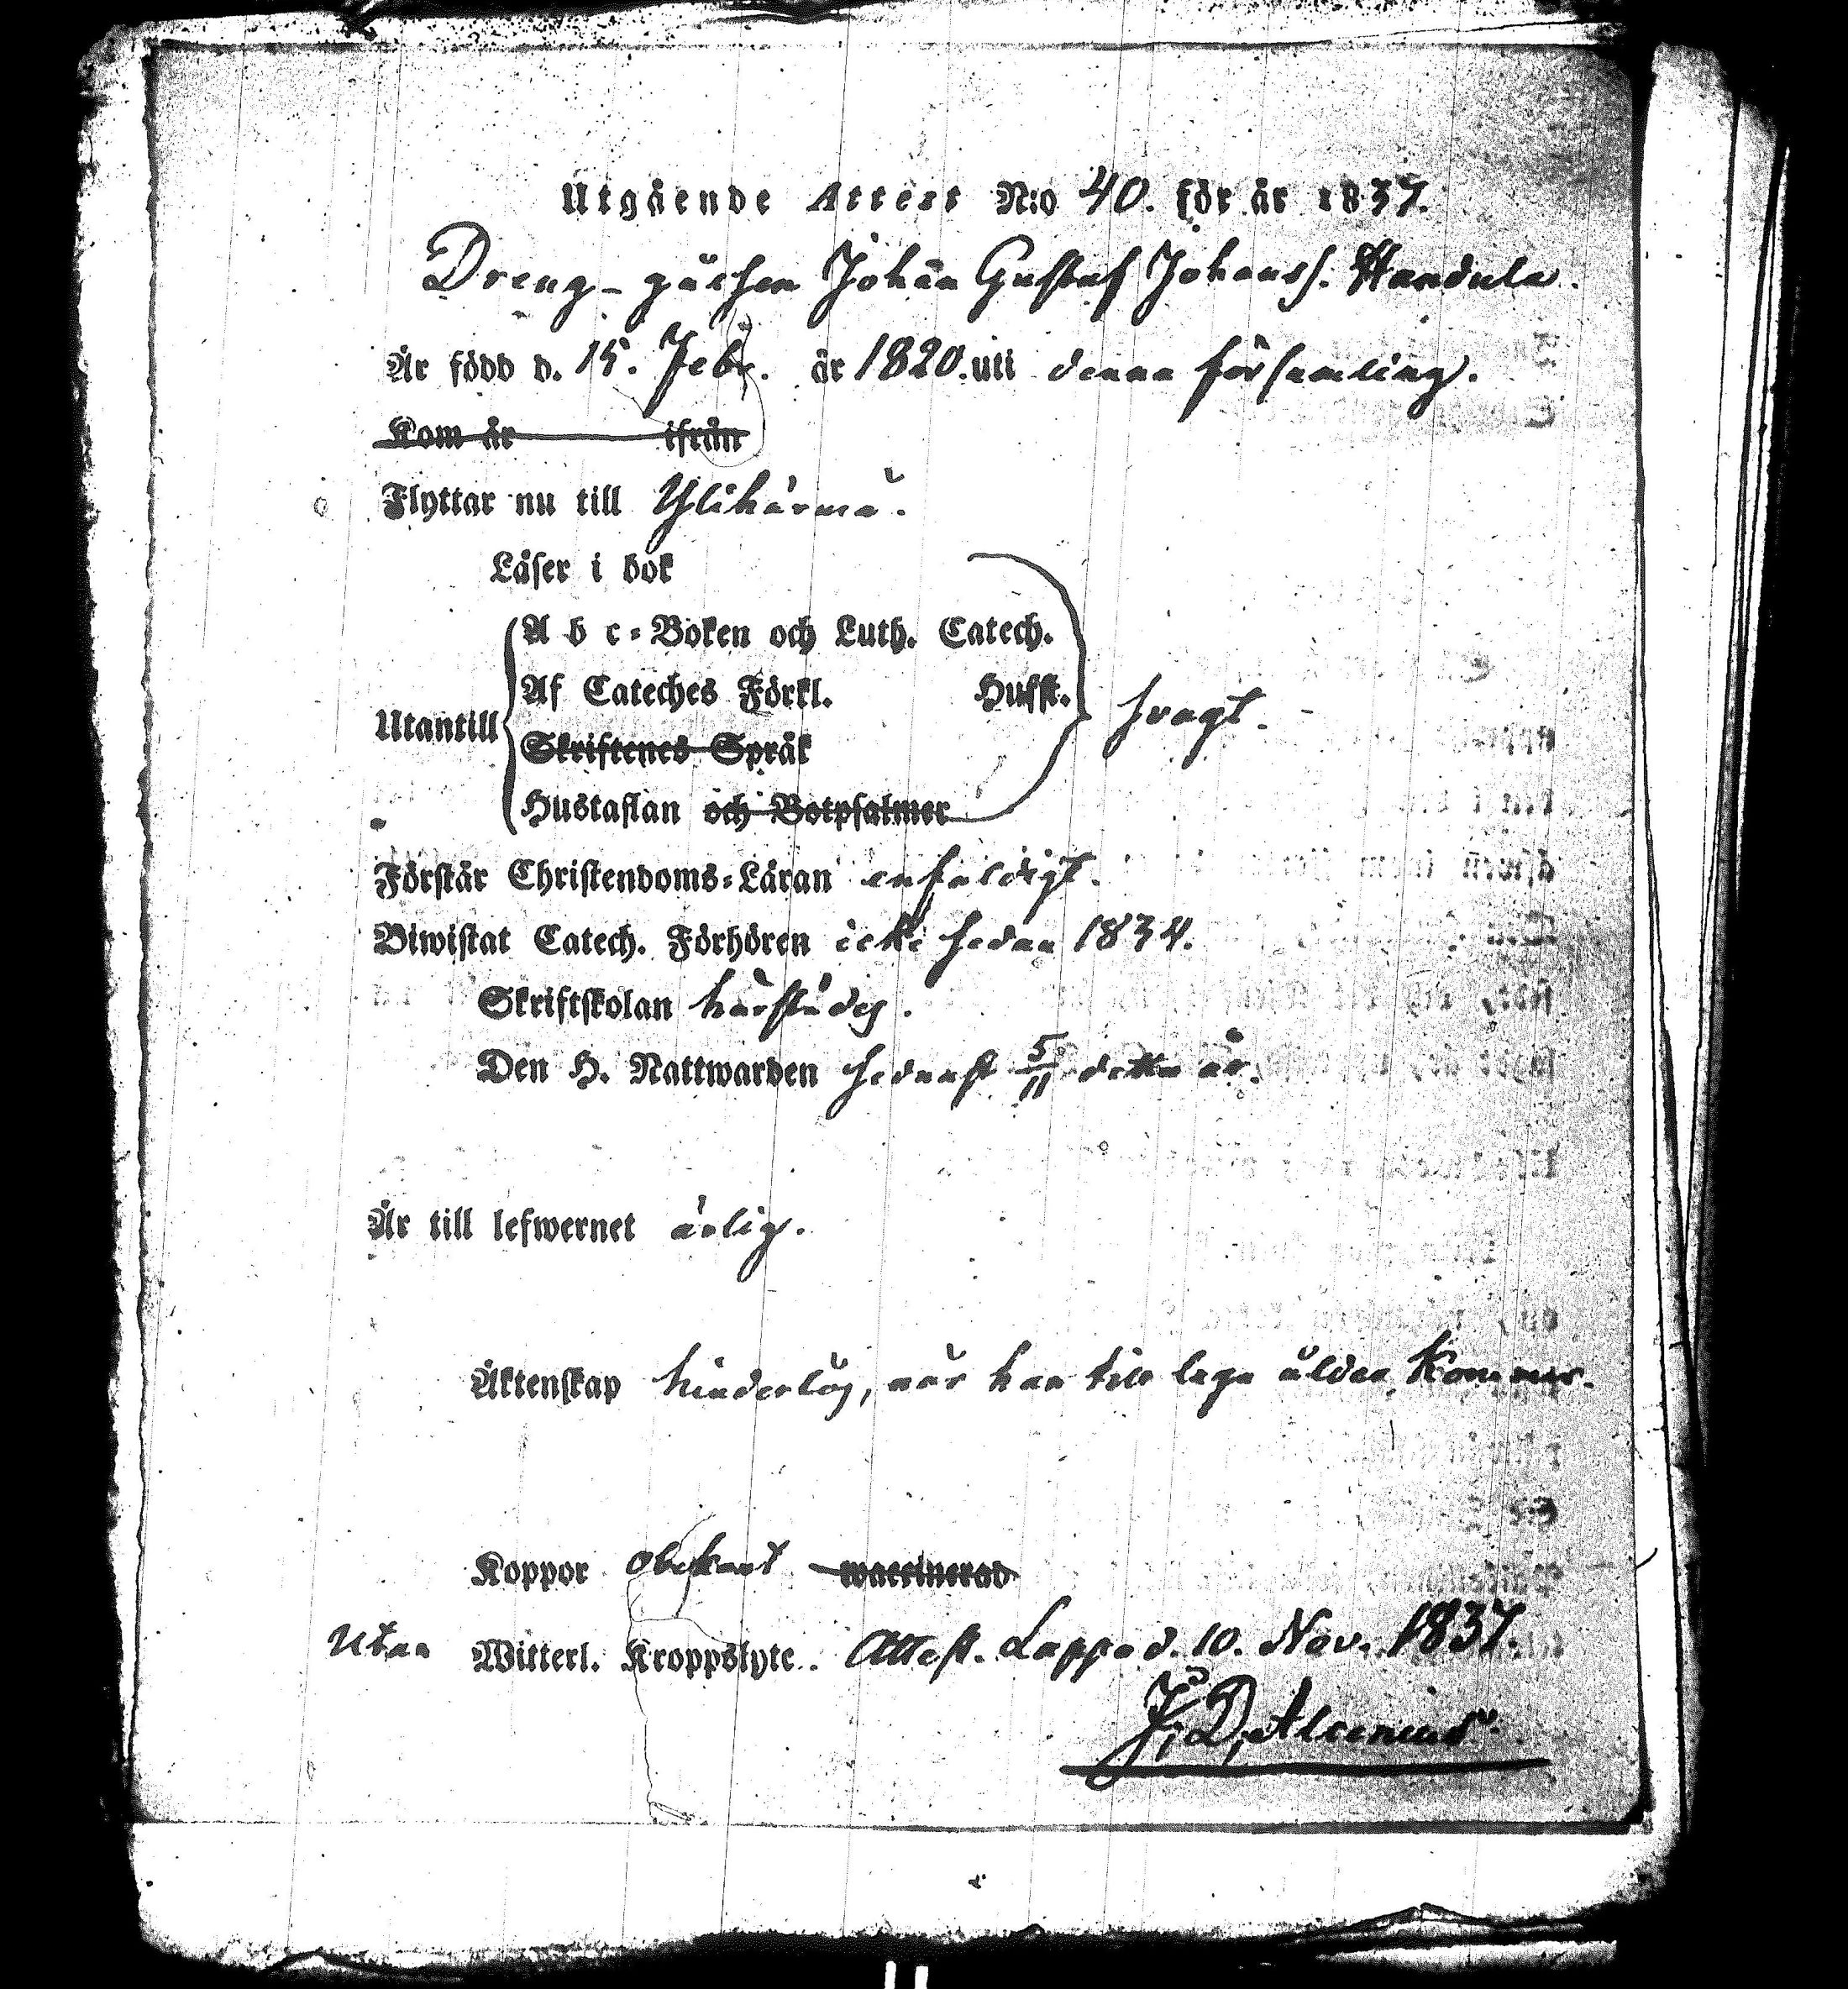 Utgående Attest N:o 40. för år 1837.
Dreng-gåssen Johan Gustaf Johanss. Handula.
Är född d. 15. Febr. år 1820. uti denna församling.
Kom år ifrån
Flyttar nu till Ylihärmä.
Läser i bok
A b c-Boken och Luth. Catech.
Af Cateches Förkl. Hufst.
Utantill svagt.
Skriftenes Språk
Hustaflan och Botpsalmer
Förstår Christendoms-Läran enfaldigt.
Biwistat Catech. Förhören icke sedan 1834.
Skriftskolan härstädes.
Den H. Nattwarden sednast 5/11 detta år.
Är till lefwernet ärlig.
Äktenskap hinderlös, når han till laga ålder kommer.
Koppor obekant waccinerad
Utan Witterl. Kroppslyte. Attest. Lappo d. 10. Nov. 1837.
J. D. Alcenius